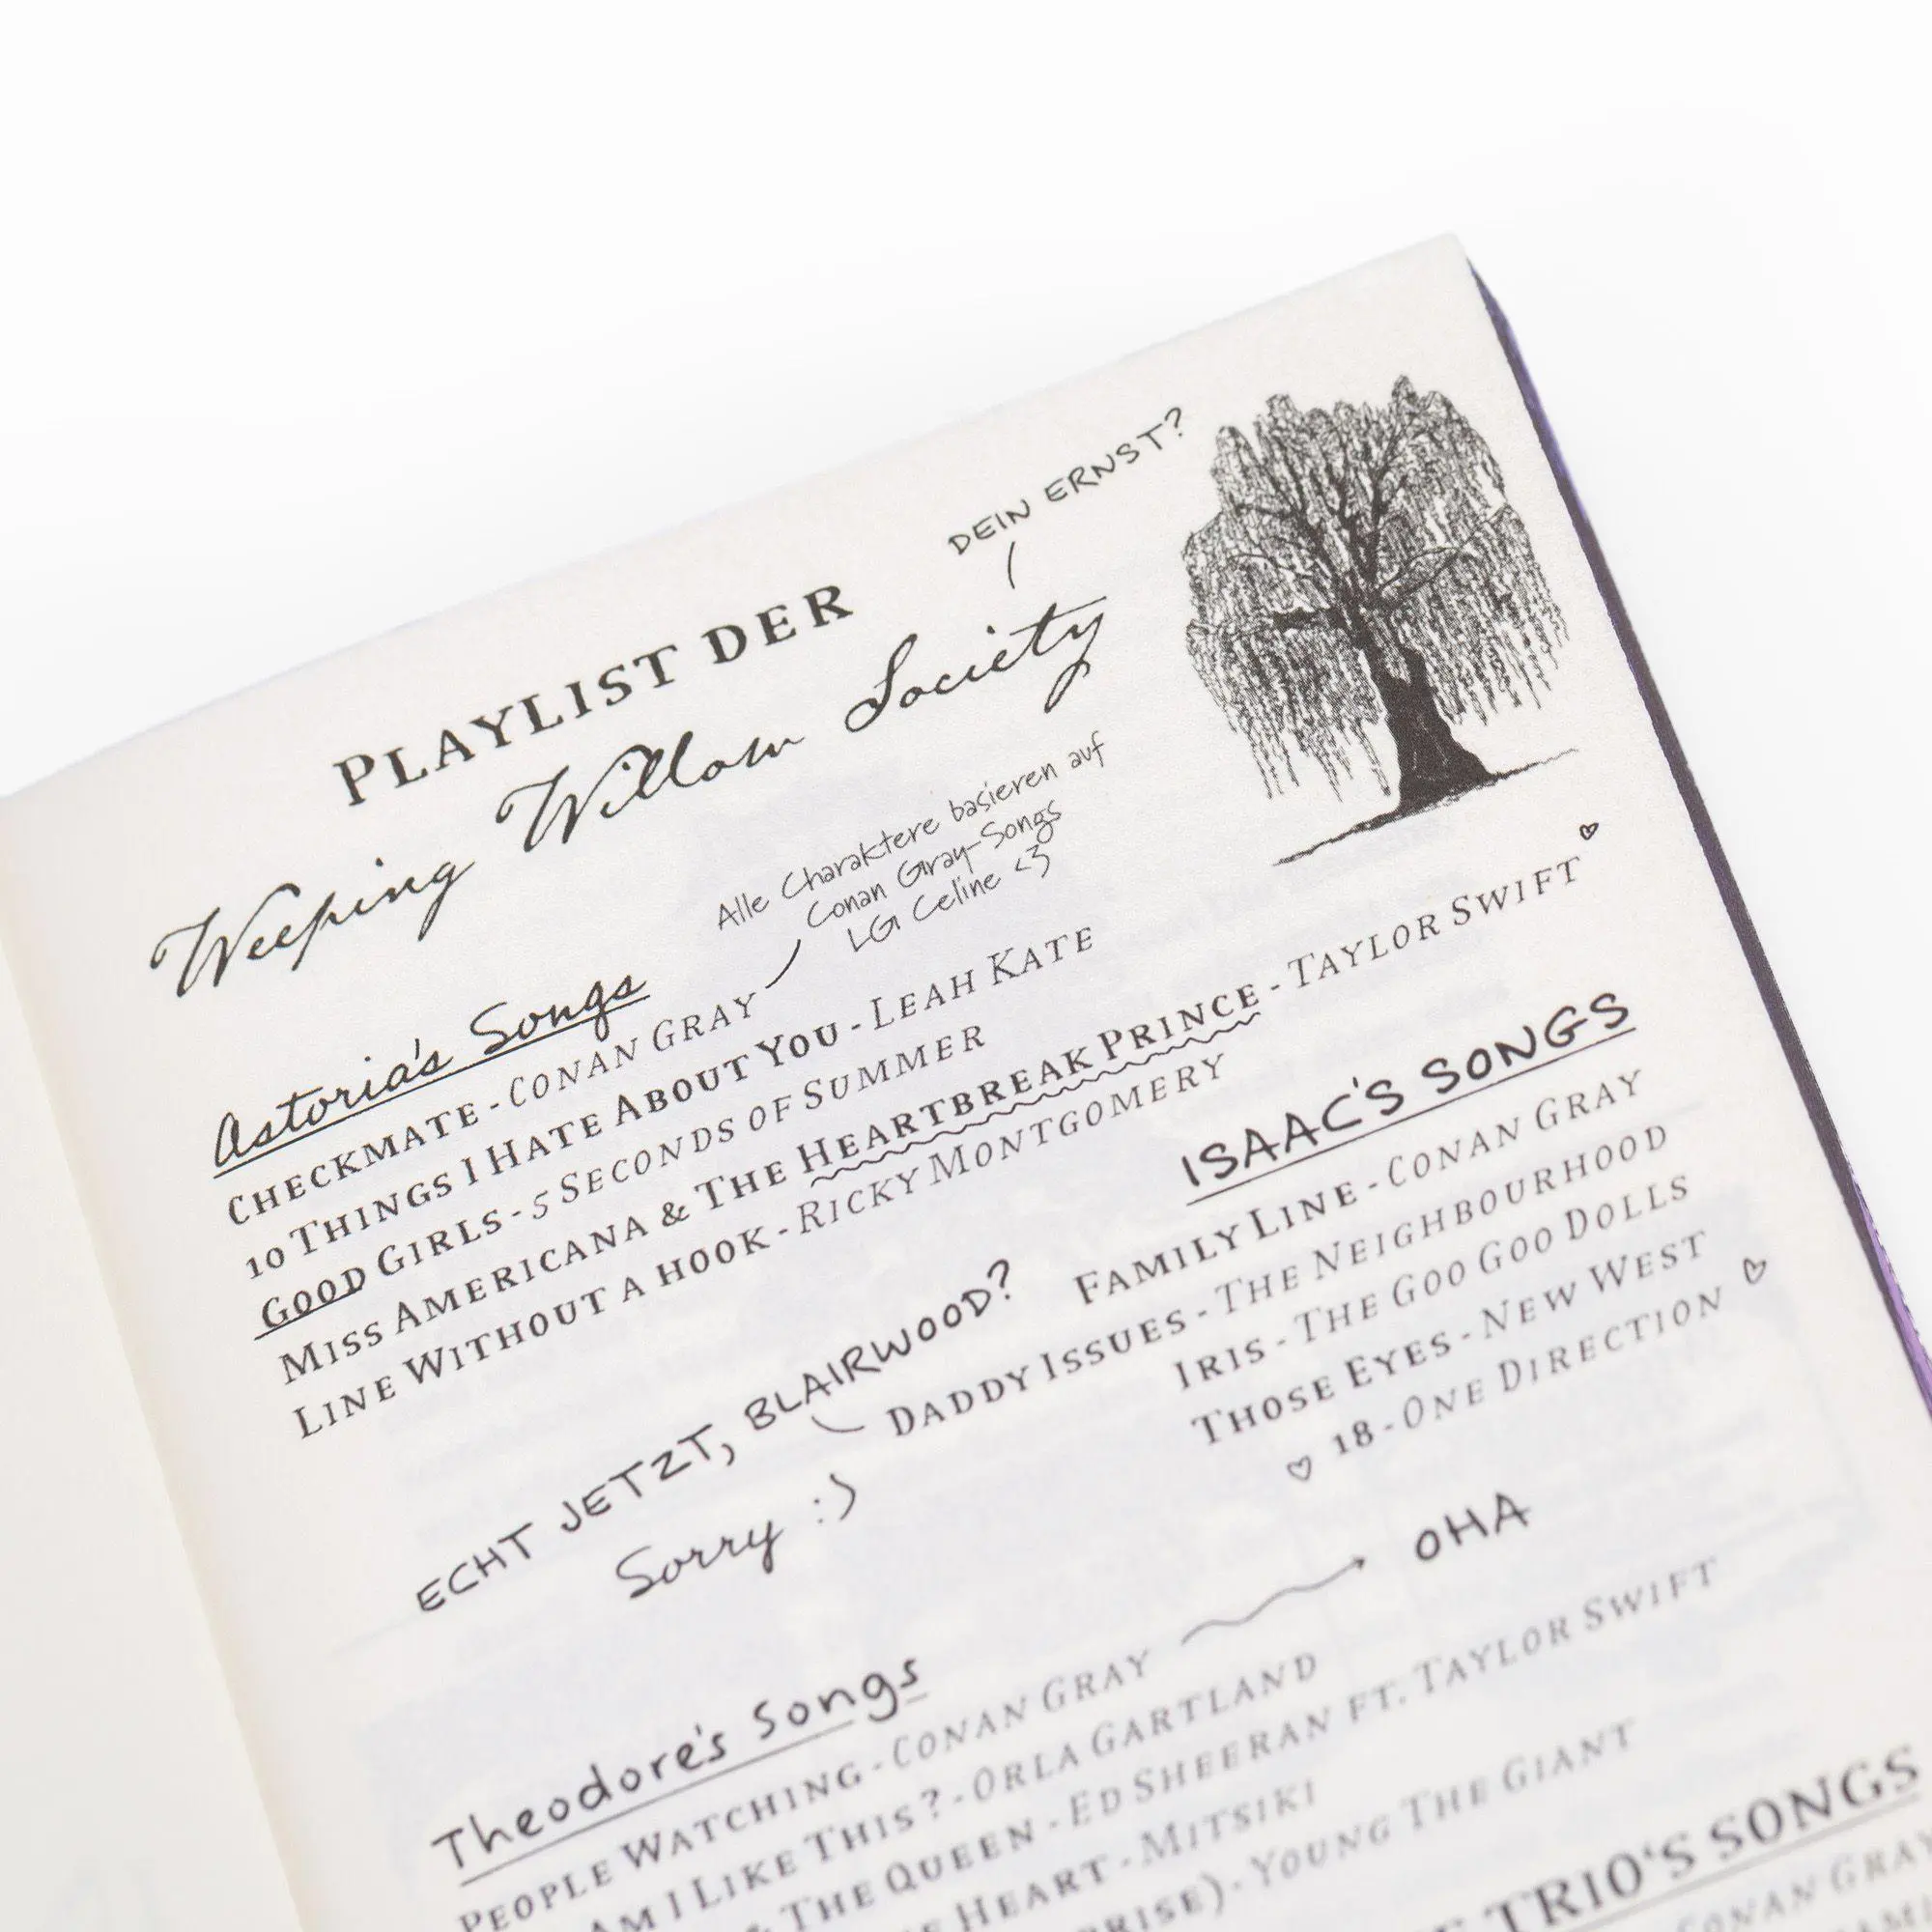 DEIN ERNST?
PLAYLIST DER
Weeping Willow Society
Alle Charaktere basieren auf
Conan Gray-Songs
LG Celine <3
Astoria's Songs
CHECKMATE - CONAN GRAY
10 THINGS I HATE ABOUT YOU - LEAH KATE
GOOD GIRLS - 5 SECONDS OF SUMMER
MISS AMERICANA & THE HEARTBREAK PRINCE - TAYLOR SWIFT ♡
LINE WITHOUT A HOOK - RICKY MONTGOMERY
ISAAC'S SONGS
FAMILY LINE - CONAN GRAY
DADDY ISSUES - THE NEIGHBOURHOOD
IRIS - THE GOO GOO DOLLS
THOSE EYES - NEW WEST
♡ 18 - ONE DIRECTION ♡
ECHT JETZT, BLAIRWOOD?
Sorry :)
OHA
Theodore's Songs
PEOPLE WATCHING - CONAN GRAY
AM I LIKE THIS? - ORLA GARTLAND
THE QUEEN - ED SHEERAN FT. TAYLOR SWIFT
HEART - MITSKI
YOUNG THE GIANT
TRIO'S SONGS
CONAN GRAY